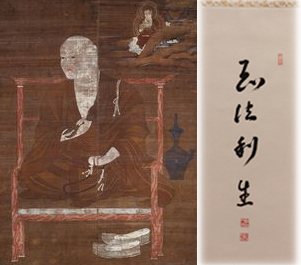 弘法利生